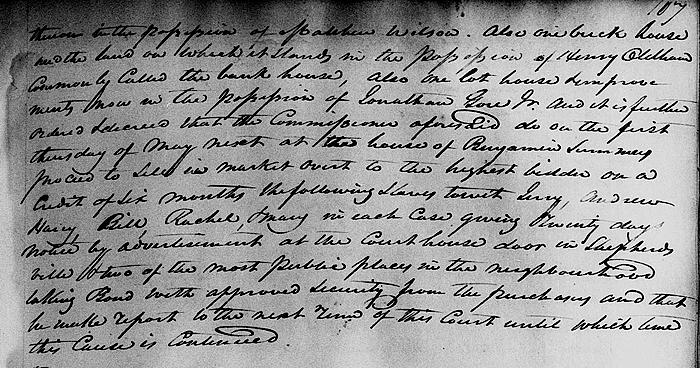 107
thereon in the Possession of Matthew Wilson. Also one brick house
and the land on which it stands in the Possession of Henry Oldham
Commonly Called the bank house, Also one lot house & improve
ments now in the Possession of Jonathan Gore Jr. And it is further
Ordered & decreed that the Commissioner aforesaid do on the first
thursday of May next at the house of Benjamin Summers
proceed to Sell in market overt to the highest bidder on a
Credit of Six months the following Slaves towit Jerry, Andrew
Harry, Bill, Rachel, & Mary in each Case giving Twenty days
notice by advertisement at the Courthouse door in Shepherds
ville & two of the most Public places in the neighbourhood
taking Bond with approved Security from the purchases and that
he make report to the next Term of this Court until which time
this Cause is Continued.